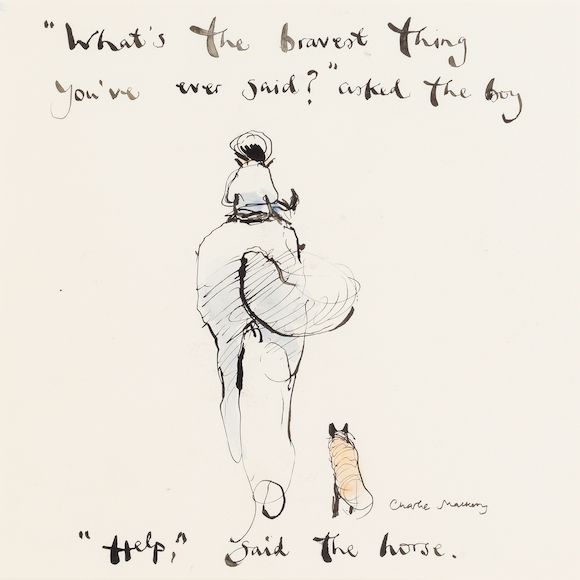 "What's the bravest thing
you've ever said?" asked the boy
Charlie Mackesy
"Help," said the horse.